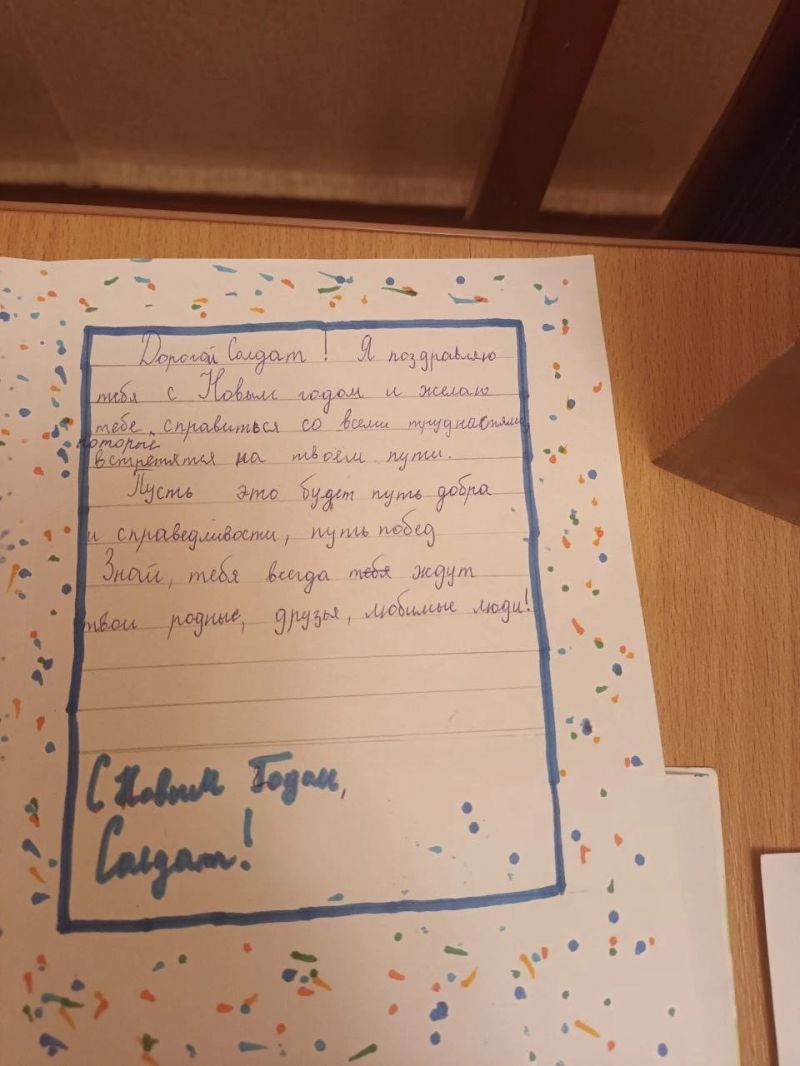 Дорогой Солдат! Я поздравляю
тебя с Новым годом и желаю
тебе справиться со всеми трудностями,
которые
встретятся на твоём пути.
Пусть это будет путь добра
и справедливости, путь побед
Знай, тебя всегда тебя ждут
твои родные, друзья, любимые люди!
С Новым Годом,
Солдат!